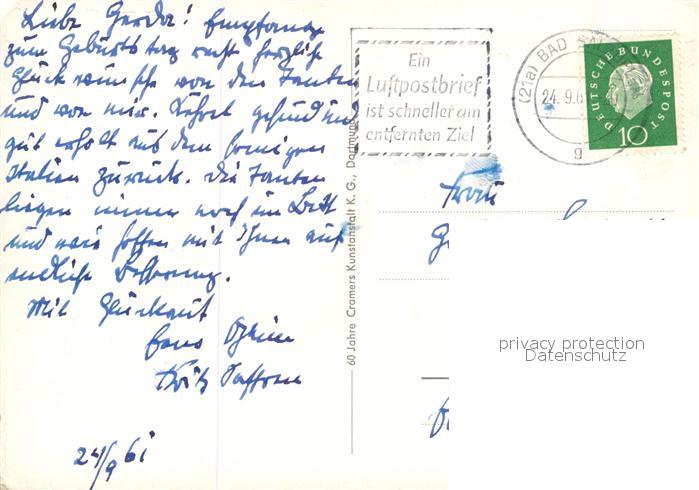 Liebe Gerda! Empfange
zum Geburtstag recht herzliche
Glückwünsche von den Tanten
und von mir. Kehrt gesund und
gut erholt aus dem sonnigen
Italien zurück. Die Tanten
liegen immer noch im Bett
und wir hoffen mit Ihnen auf
endliche Besserung.
Mit Glückauf
Fritz
24/9 61
60 Jahre Cramers Kunstanstalt K. G., Dortmund
Ein
Luftpostbrief
ist schneller am
entfernten Ziel
(21a) BAD
24.9.6
g
DEUTSCHE BUNDESPOST
10
Frau
privacy protection
Datenschutz